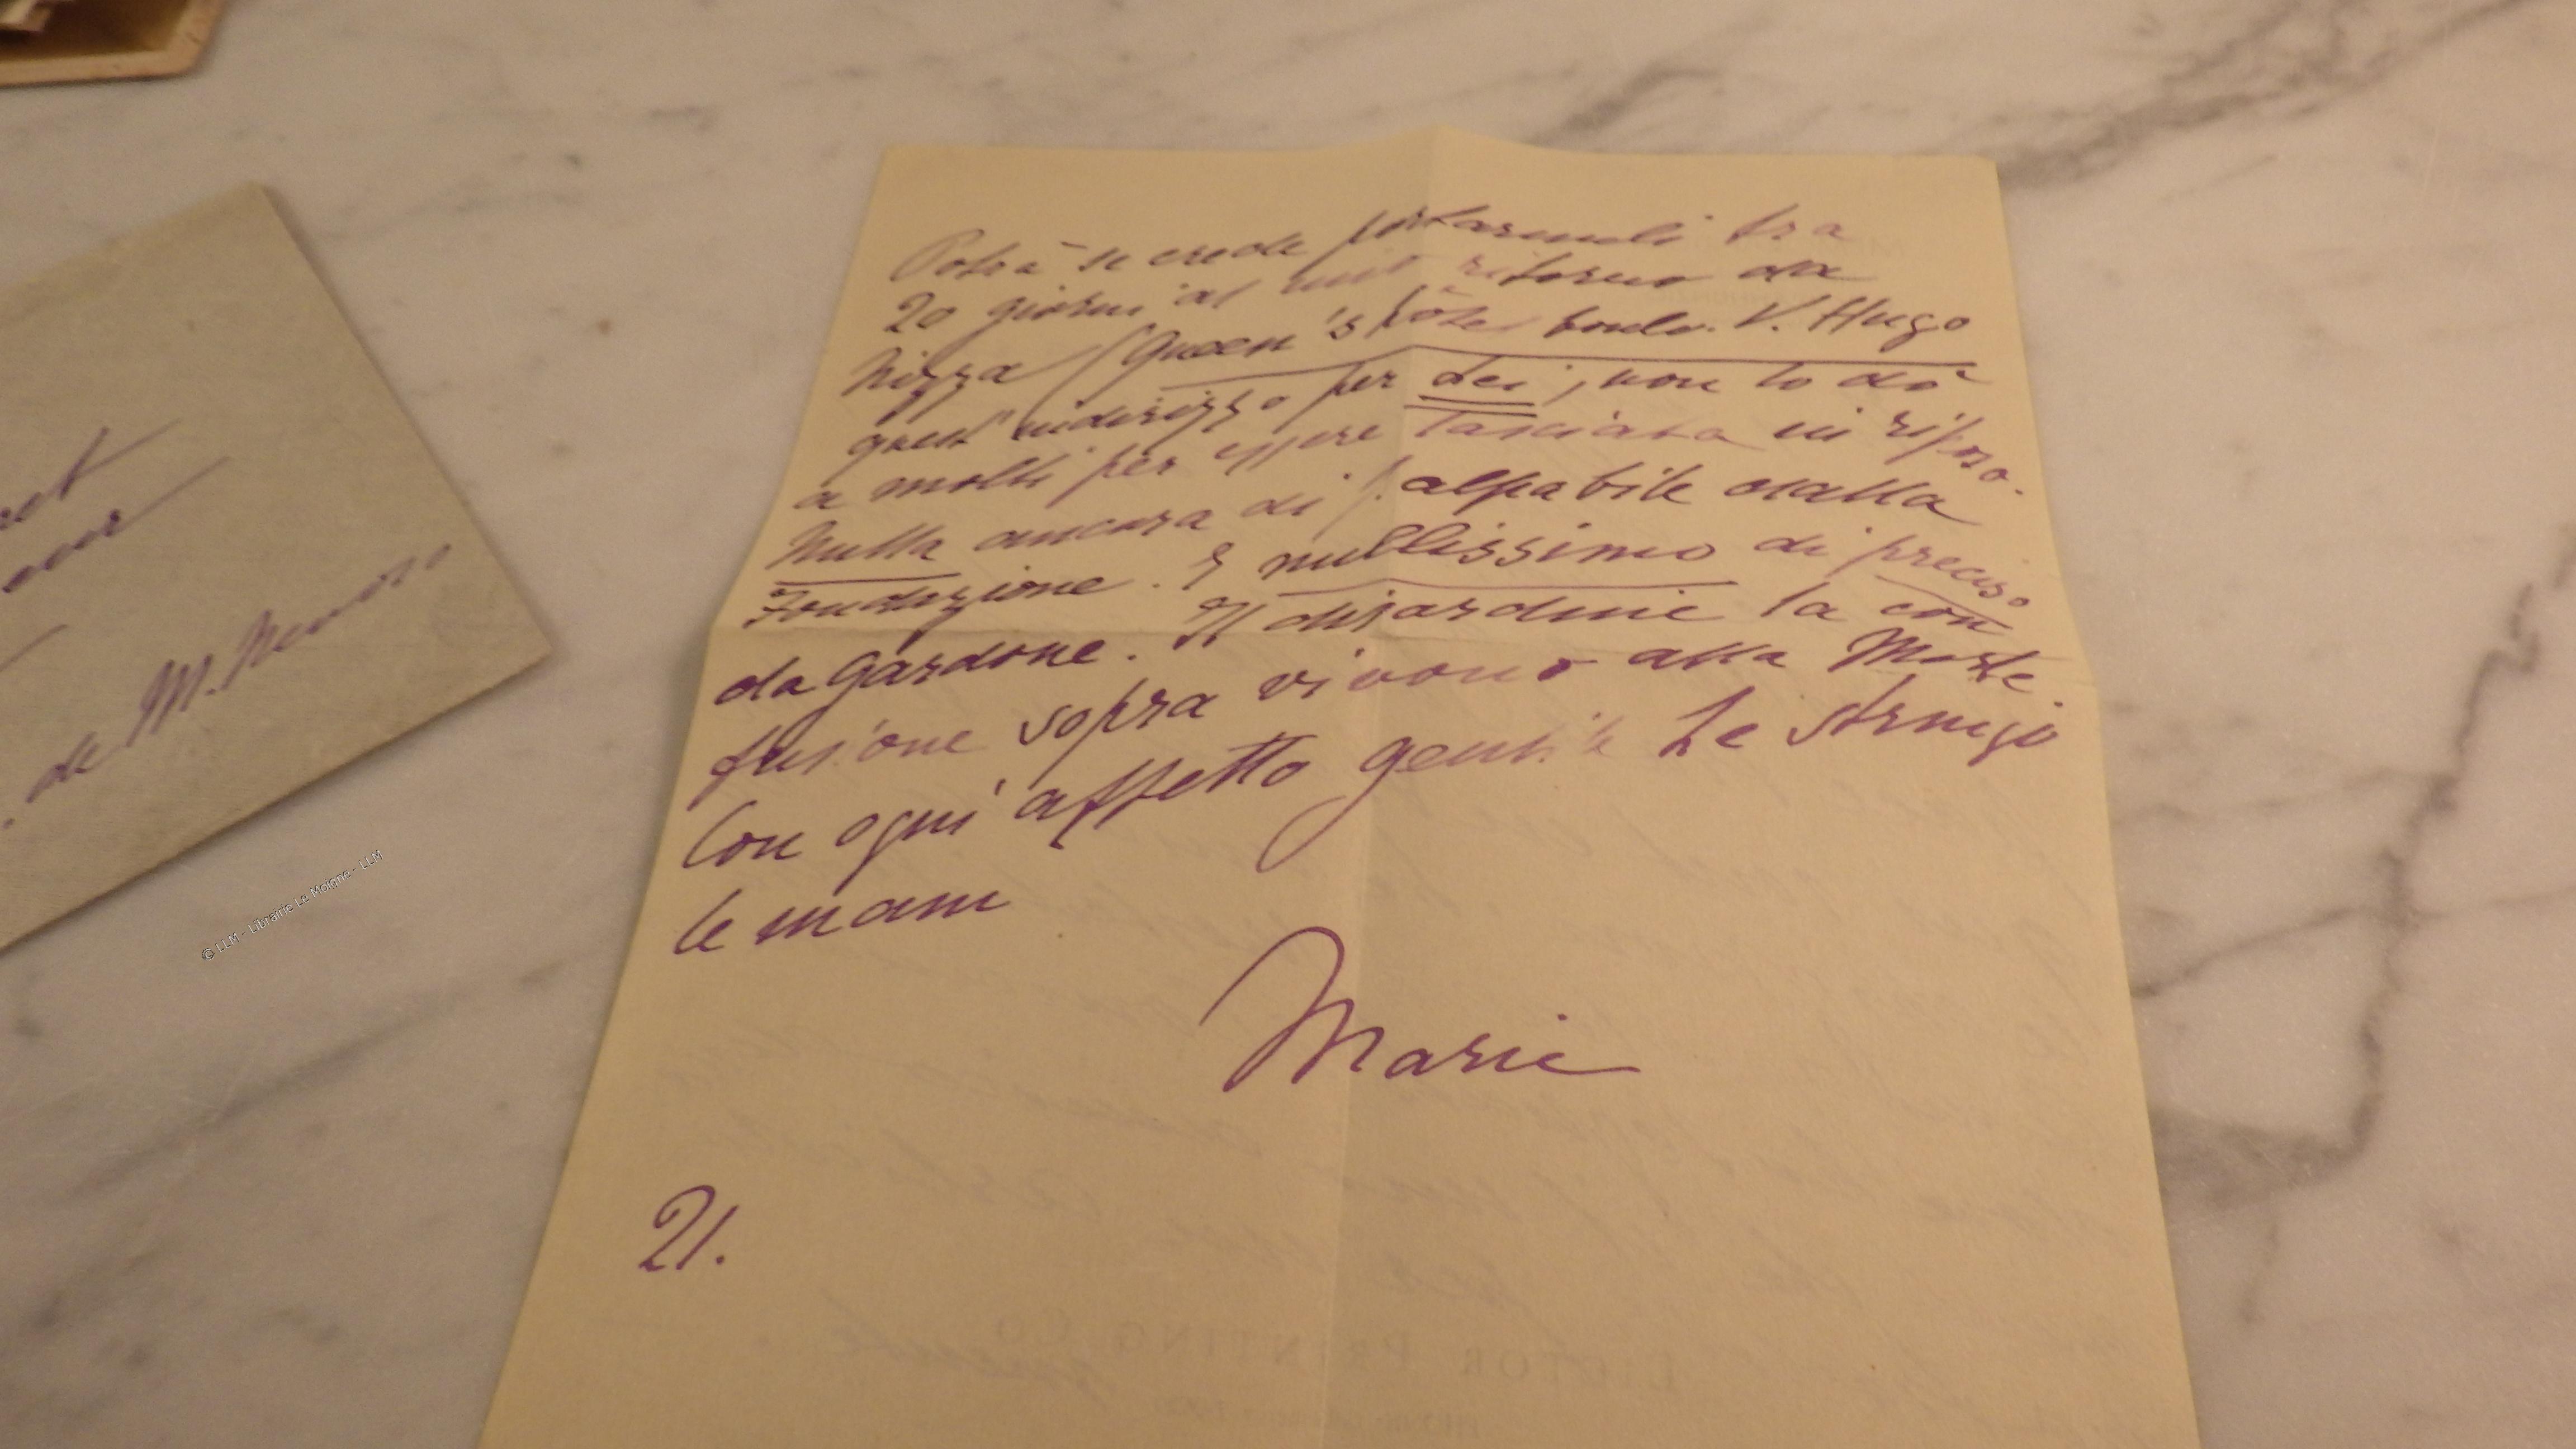 Potrà se crede portarmeli tra
20 giorni al mio ritorno da
Nizza (Queen's Hôtel boulv. V. Hugo
quest'indirizzo per Lei, non lo dò
a molti per essere lasciata in riposo.
Nulla ancora di palpabile dalla
Fondazione. E nullissimo di preciso
da Gardone. Il disordine la con
fusione sopra vivono alla Morte.
Con ogni affetto gentile Le stringo
le mani
Marie
21.
de M.
© LLM - Librairie Le Moigne - LLM
PRINTING CO